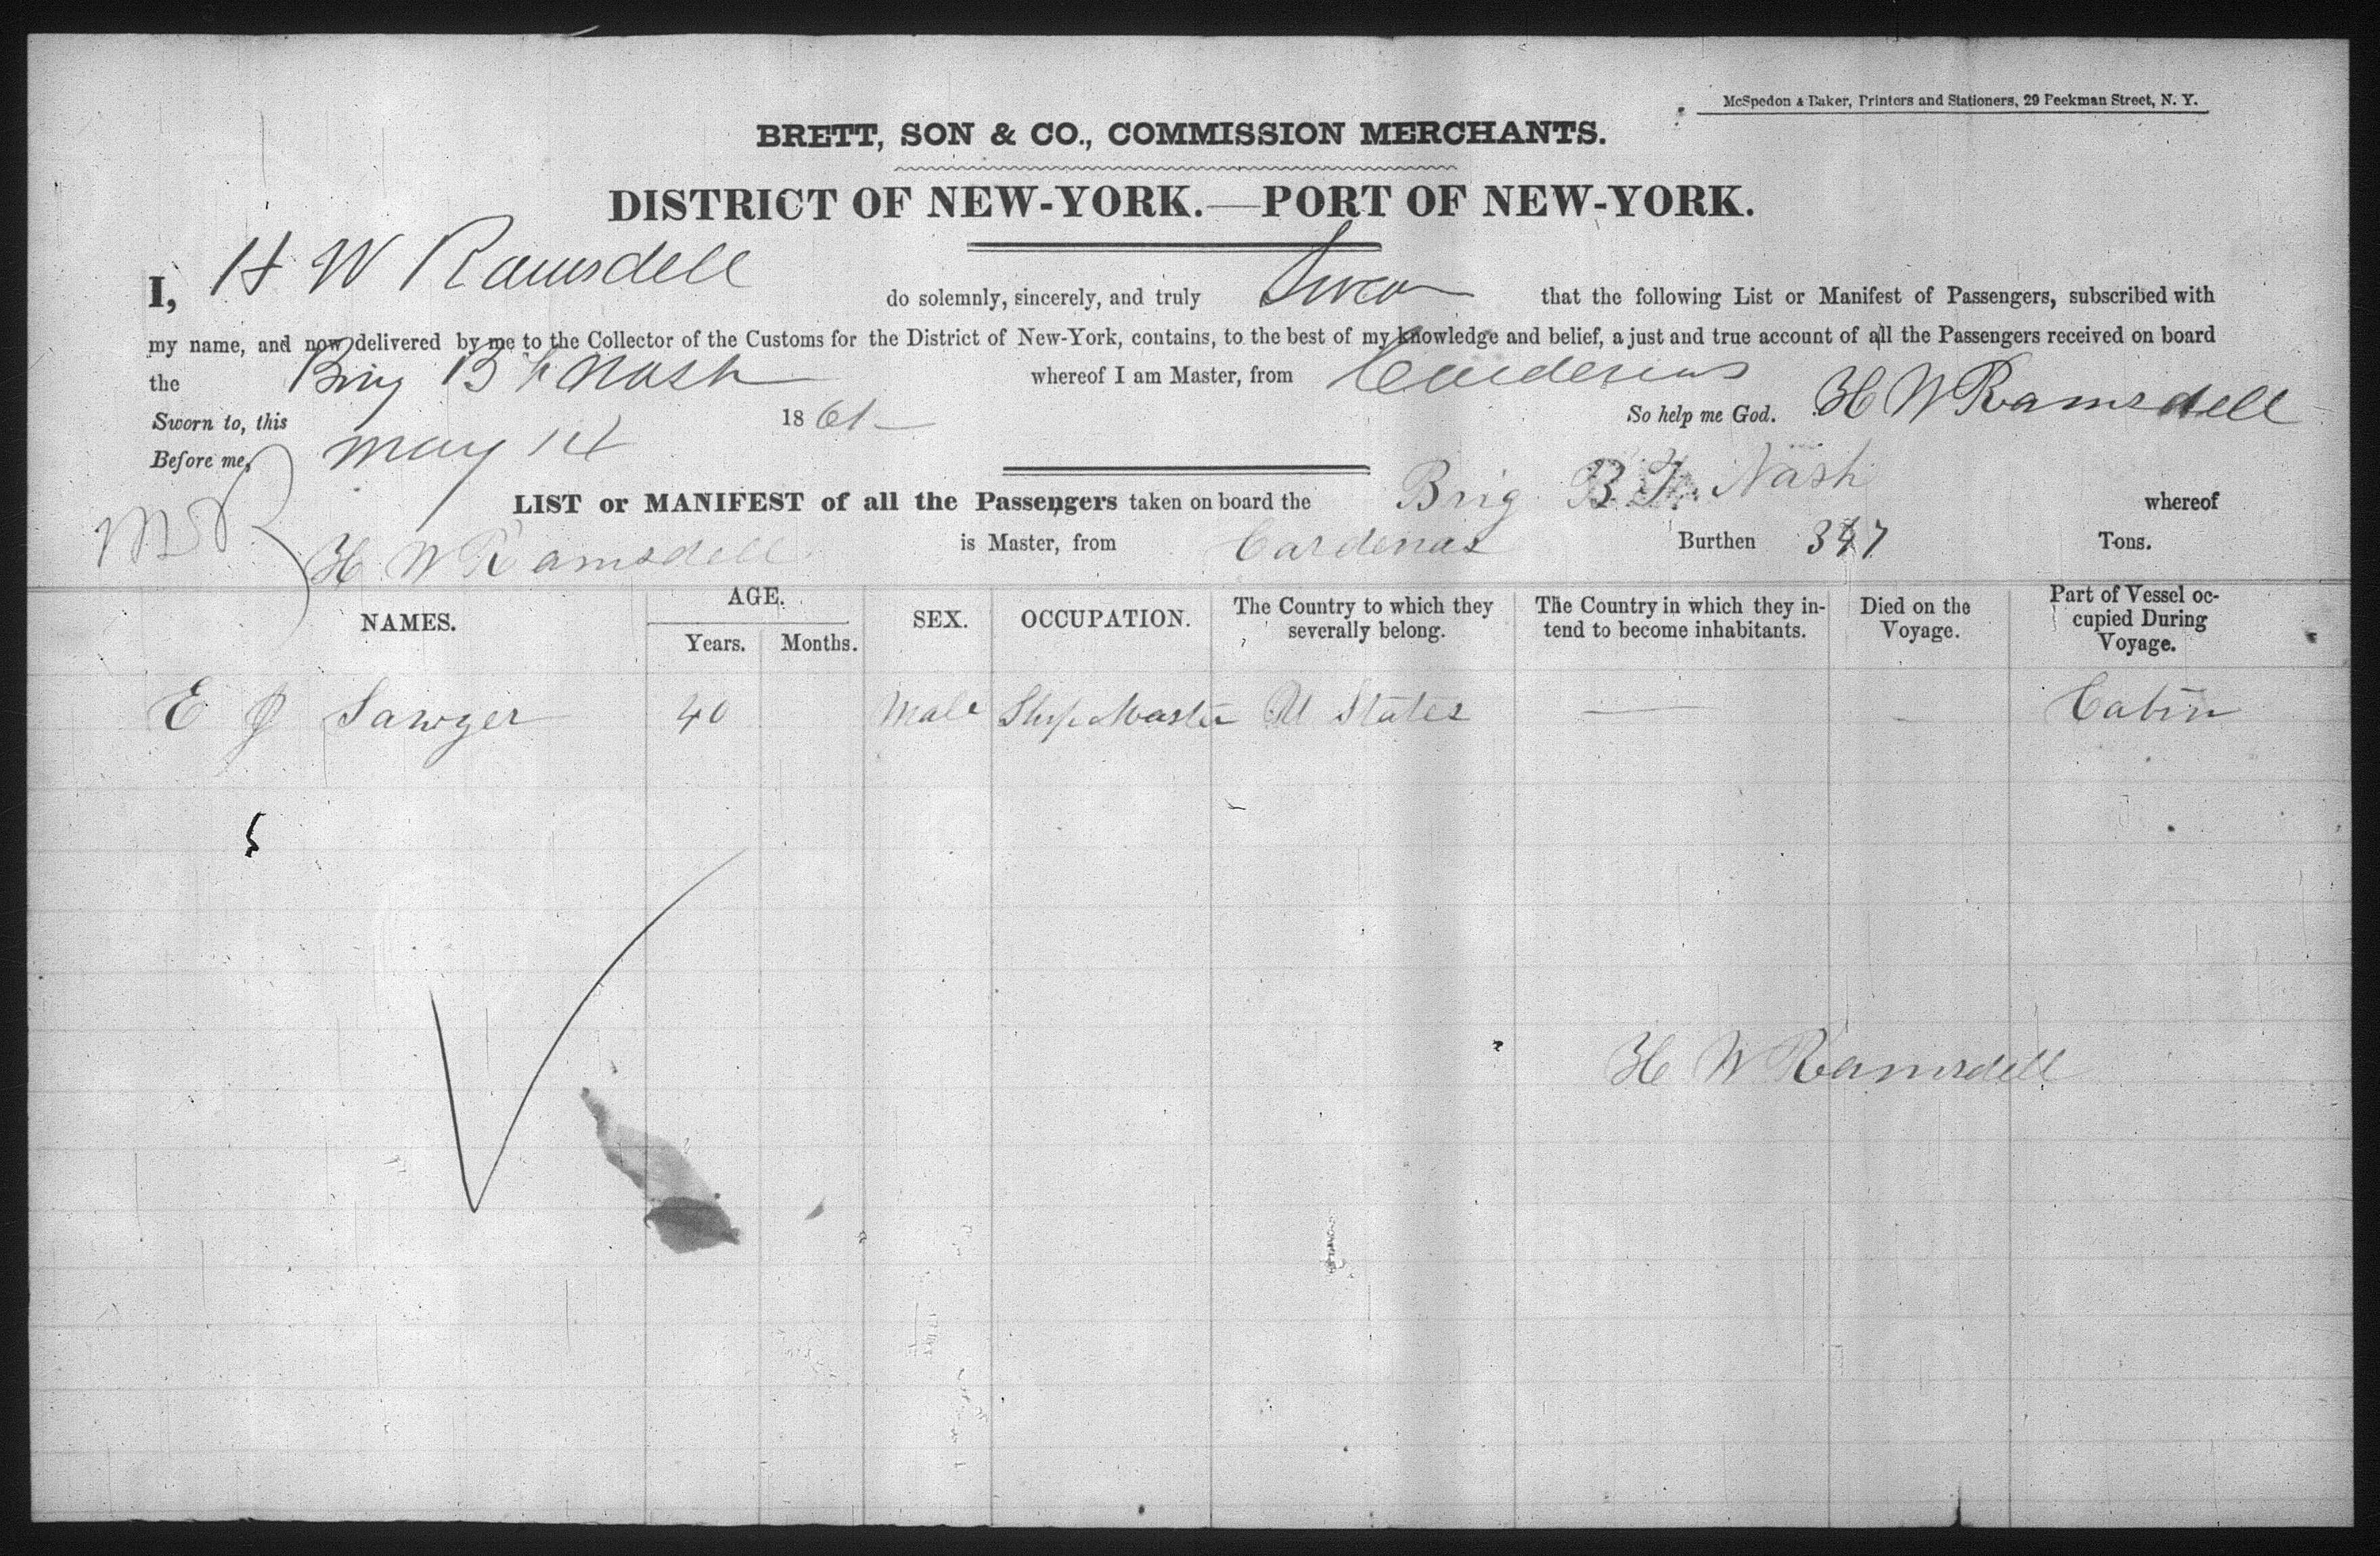 McSpedon & Baker, Printers and Stationers, 29 Beekman Street, N. Y.
BRETT, SON & CO., COMMISSION MERCHANTS.
DISTRICT OF NEW-YORK.—PORT OF NEW-YORK.
I, H W Ramsdell do solemnly, sincerely, and truly Swear that the following List or Manifest of Passengers, subscribed with
my name, and now delivered by me to the Collector of the Customs for the District of New-York, contains, to the best of my knowledge and belief, a just and true account of all the Passengers received on board
the Brig B F Nash whereof I am Master, from Cardenas
Sworn to, this May 14 1861 So help me God. H W Ramsdell
Before me,
LIST or MANIFEST of all the Passengers taken on board the Brig B. F. Nash whereof
H W Ramsdell is Master, from Cardenas Burthen 347 Tons.
NAMES. AGE. Years. Months. SEX. OCCUPATION. The Country to which they severally belong. The Country in which they intend to become inhabitants. Died on the Voyage. Part of Vessel occupied During Voyage.
E J Sawyer 40 Male Ship Master U States — - Cabin
H W Ramsdell